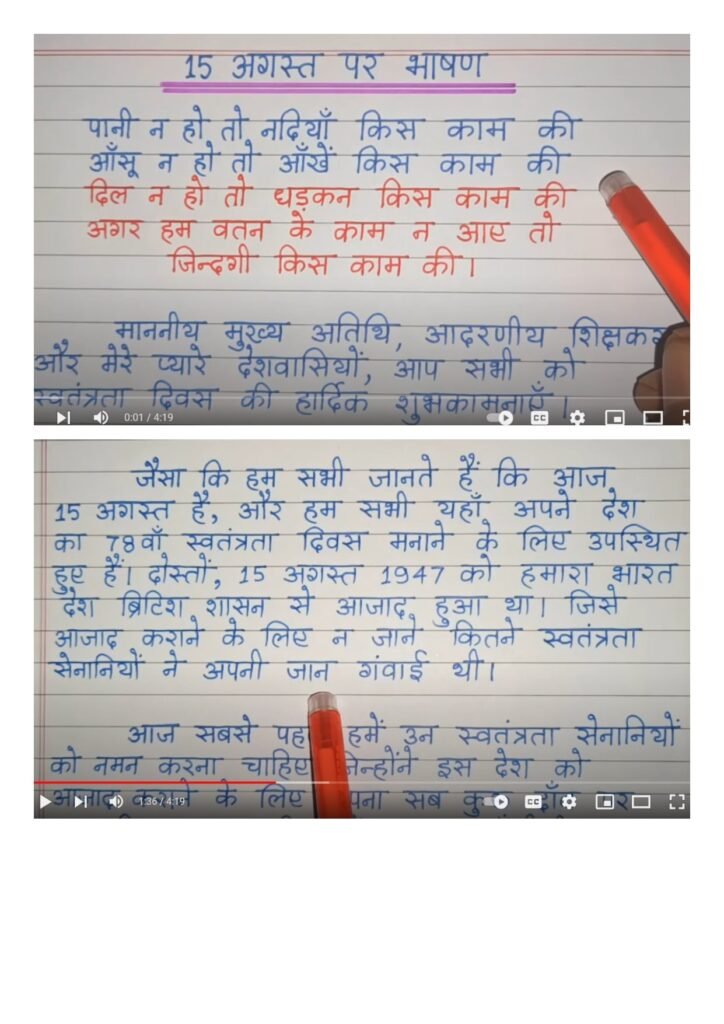 15 अगस्त पर भाषण
पानी न हो तो नदियाँ किस काम की
आँसू न हो तो आँखें किस काम की
दिल न हो तो धड़कन किस काम की
अगर हम वतन के काम न आए तो
जिन्दगी किस काम की।
माननीय मुख्य अतिथि, आदरणीय
और मेरे प्यारे देशवासियों, आप सभी को
स्वतंत्रता दिवस की हार्दिक शुभकामनाएँ।
0:01 / 4:19
CC
जैसा कि हम सभी जानते हैं कि आज
15 अगस्त है, और हम सभी यहाँ अपने देश
का 78वाँ स्वतंत्रता दिवस मनाने के लिए उपस्थित
हुए हैं। दोस्तों, 15 अगस्त 1947 को हमारा भारत
देश ब्रिटिश शासन से आजाद हुआ था। जिसे
आजाद कराने के लिए न जाने कितने स्वतंत्रता
सेनानियों ने अपनी जान गंवाई थी।
आज सबसे हमें उन स्वतंत्रता सेनानियों
को नमन करना चाहिए जिन्होंने इस देश को
आजाद कराने के लिए सब
1:36 / 4:19
CC